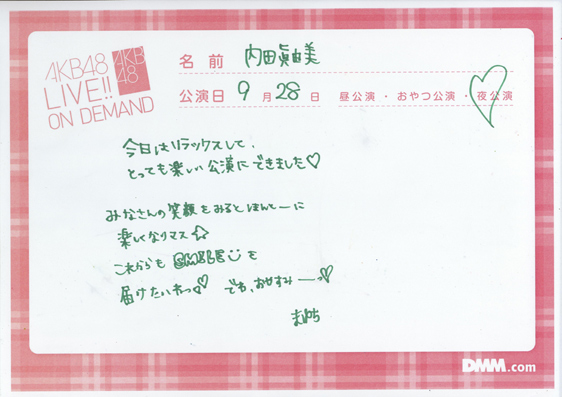 AKB48
LIVE!!
ON DEMAND
AKB
48
名前 内田眞由美
公演日 9月28日 昼公演・おやつ公演・夜公演
今日はリラックスして、
とっても楽しい公演にできました♡
みなさんの笑顔をみるとほんとーに
楽しくなりマス☆
これからも SMILE を
届けたいねっ♡ では、おやすみーっ♡
まゆち
DMM.com